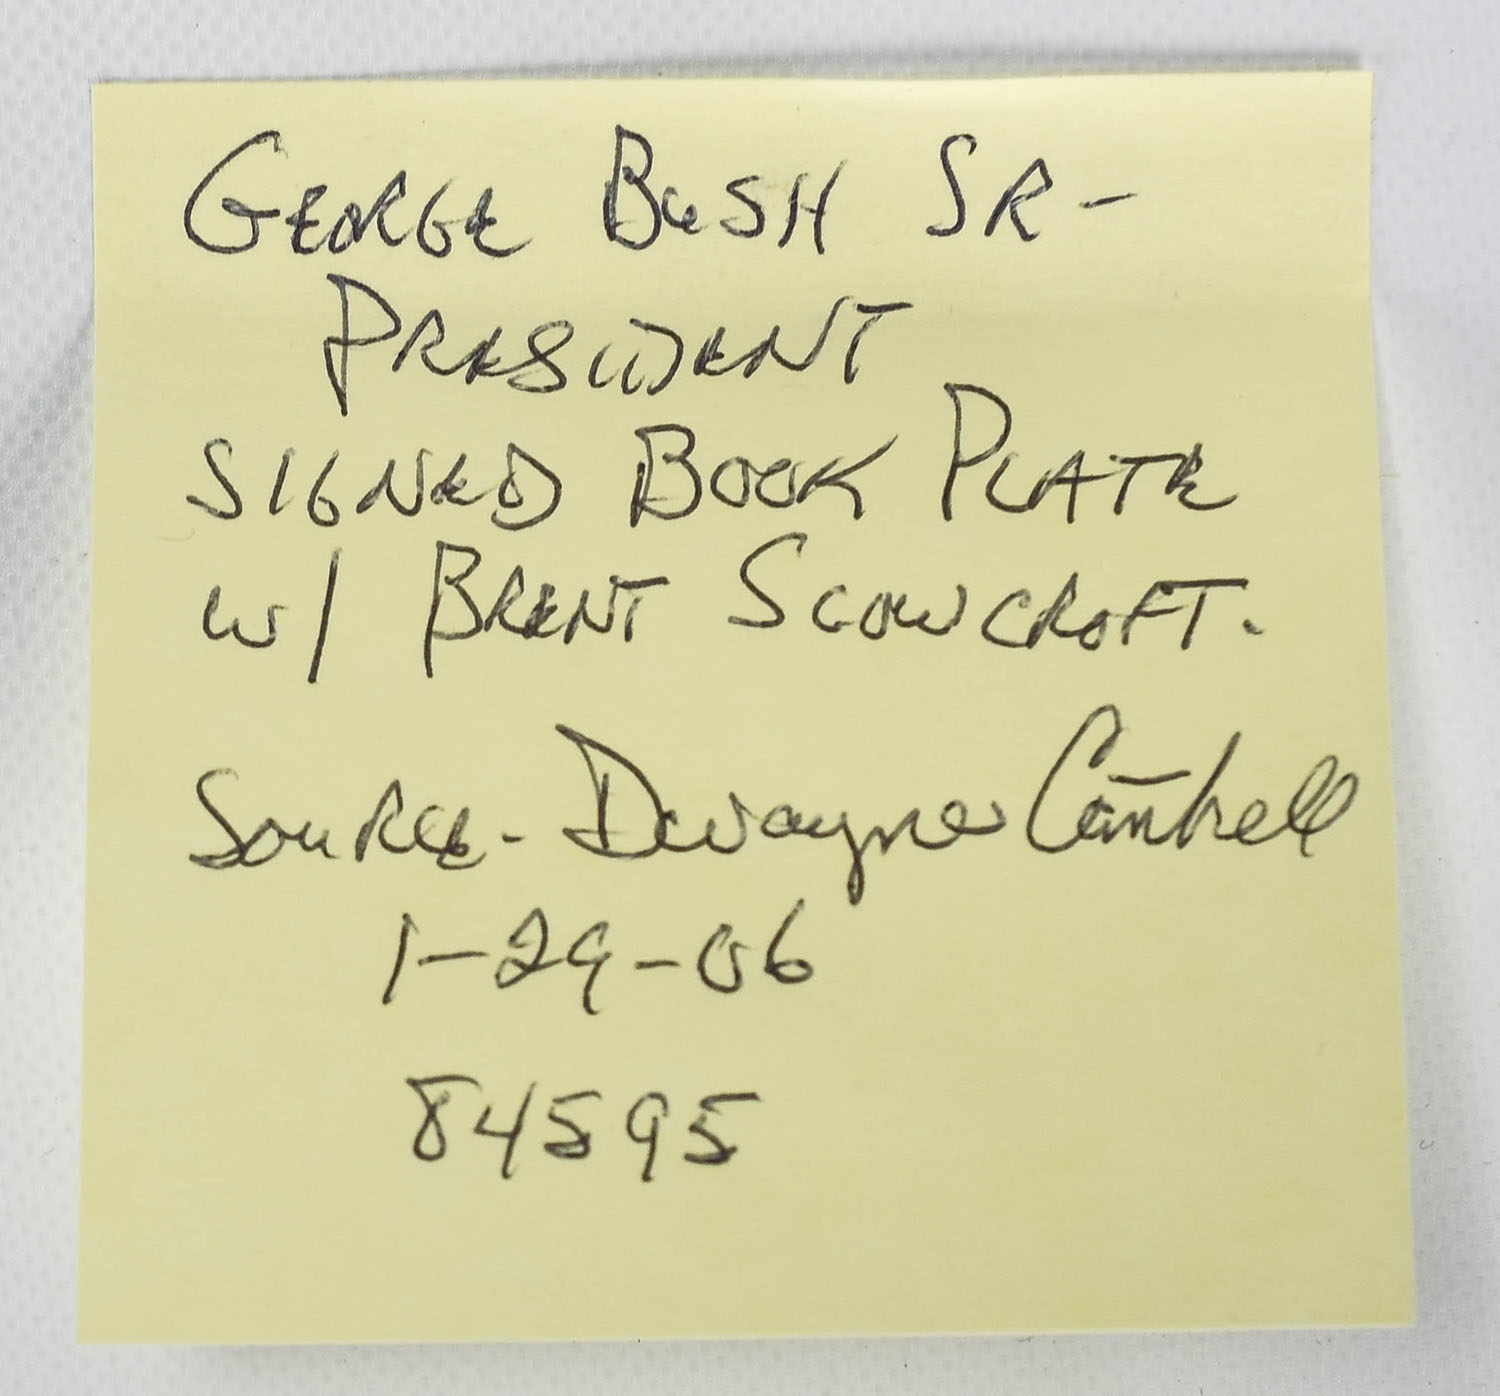 GEORGE BUSH SR-
PRESIDENT
SIGNED BOOK PLATE
W/ BRENT SCOWCROFT.
SOURCE- Dwayne Cantrell
1-29-06
84595